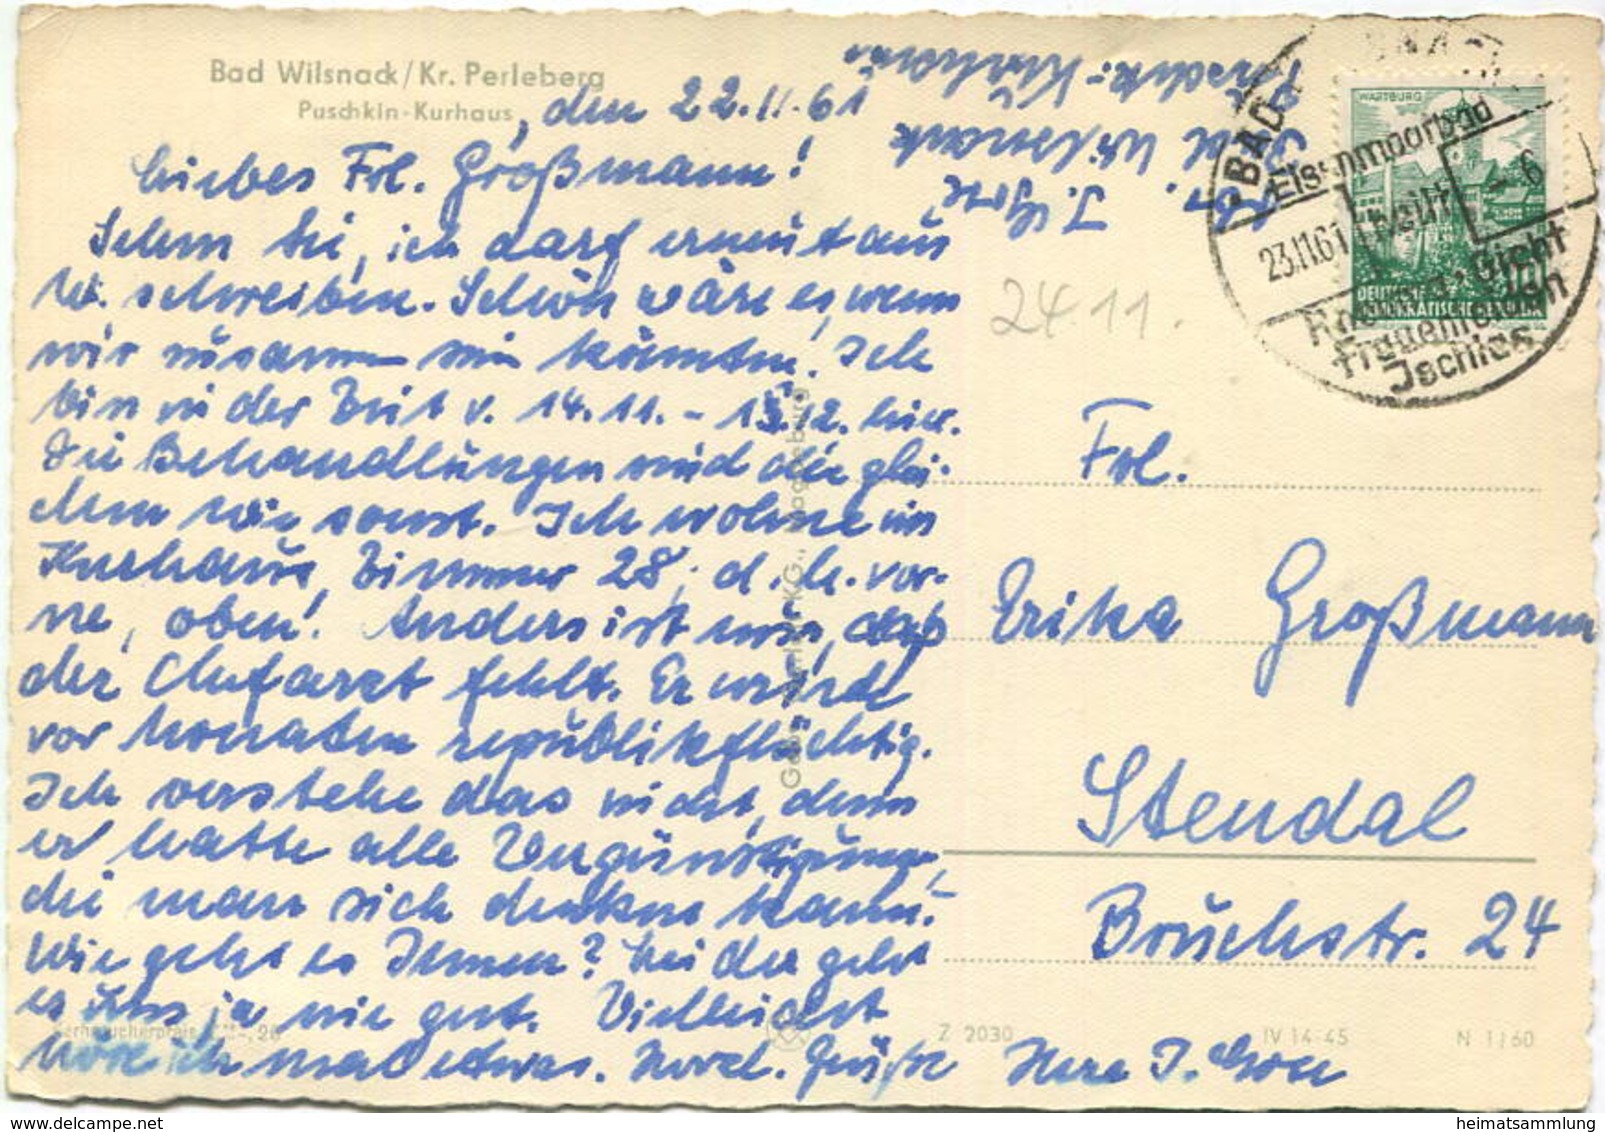 Bad Wilsnack/Kr. Perleberg
Puschkin-Kurhaus
, den 22.11.61
Liebes Frl. Großmann!
Sehen Sie, ich darf erneut aus
W. schreiben. Schön wäre es, wenn
wir zusammen sein könnten! Ich
bin in der Zeit v. 14.11. - 13.12. hier.
Die Behandlungen sind die glei-
chen wie sonst. Ich wohne im
Kurhaus, Zimmer 28, d.h. vor-
ne, oben! Anders ist nur, daß
der Chefarzt fehlt. Er wurde
vor Monaten republikflüchtig.
Ich verstehe das nicht, denn
er hatte alle Vergünstigungen,
die man sich denken kann.-
Wie geht es Ihnen? Leider geht
es uns ja nie gut. Vielleicht
höre ich mal etwas. Herzl. Grüße Ihre I.
I.
Bad Wilsnack
24.11.
WARTBURG
DEUTSCHE
DEMOKRATISCHE
10
BAD WILSNACK
Eisenmoorbad
heilt
23.11.61 - 6
Rheuma, Gicht
Frauenleiden
Ischias
Frl.
Erika Großmann
Stendal
Bruchstr. 24
Verbraucherpreis MDN -,20
Z 2030
IV 14-45
N 1/60
www.delcampe.net
heimatsammlung